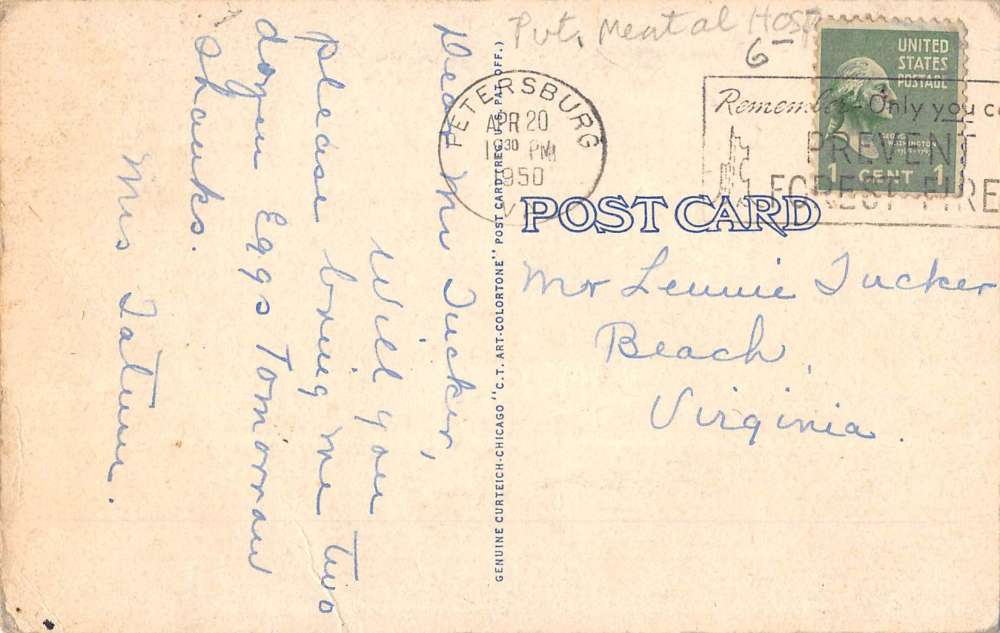 Pvt. Mental Hosp
6-
UNITED
STATES
POSTAGE
GEORGE
WASHINGTON
1 CENT 1
PETERSBURG
APR 20
30 PM
1950
VA
Remember - Only you c
PREVENT
FOREST FIRE
POST CARD
Mr Lennie Tucker
Beach,
Virginia.
GENUINE CURTEICH-CHICAGO "C.T. ART-COLORTONE" POST CARD (REG. U.S. PAT. OFF.)
Dear Mr Tucker,
Will you
please bring me two
dozen Eggs Tomorrow
Thanks.
Mrs Tatum.